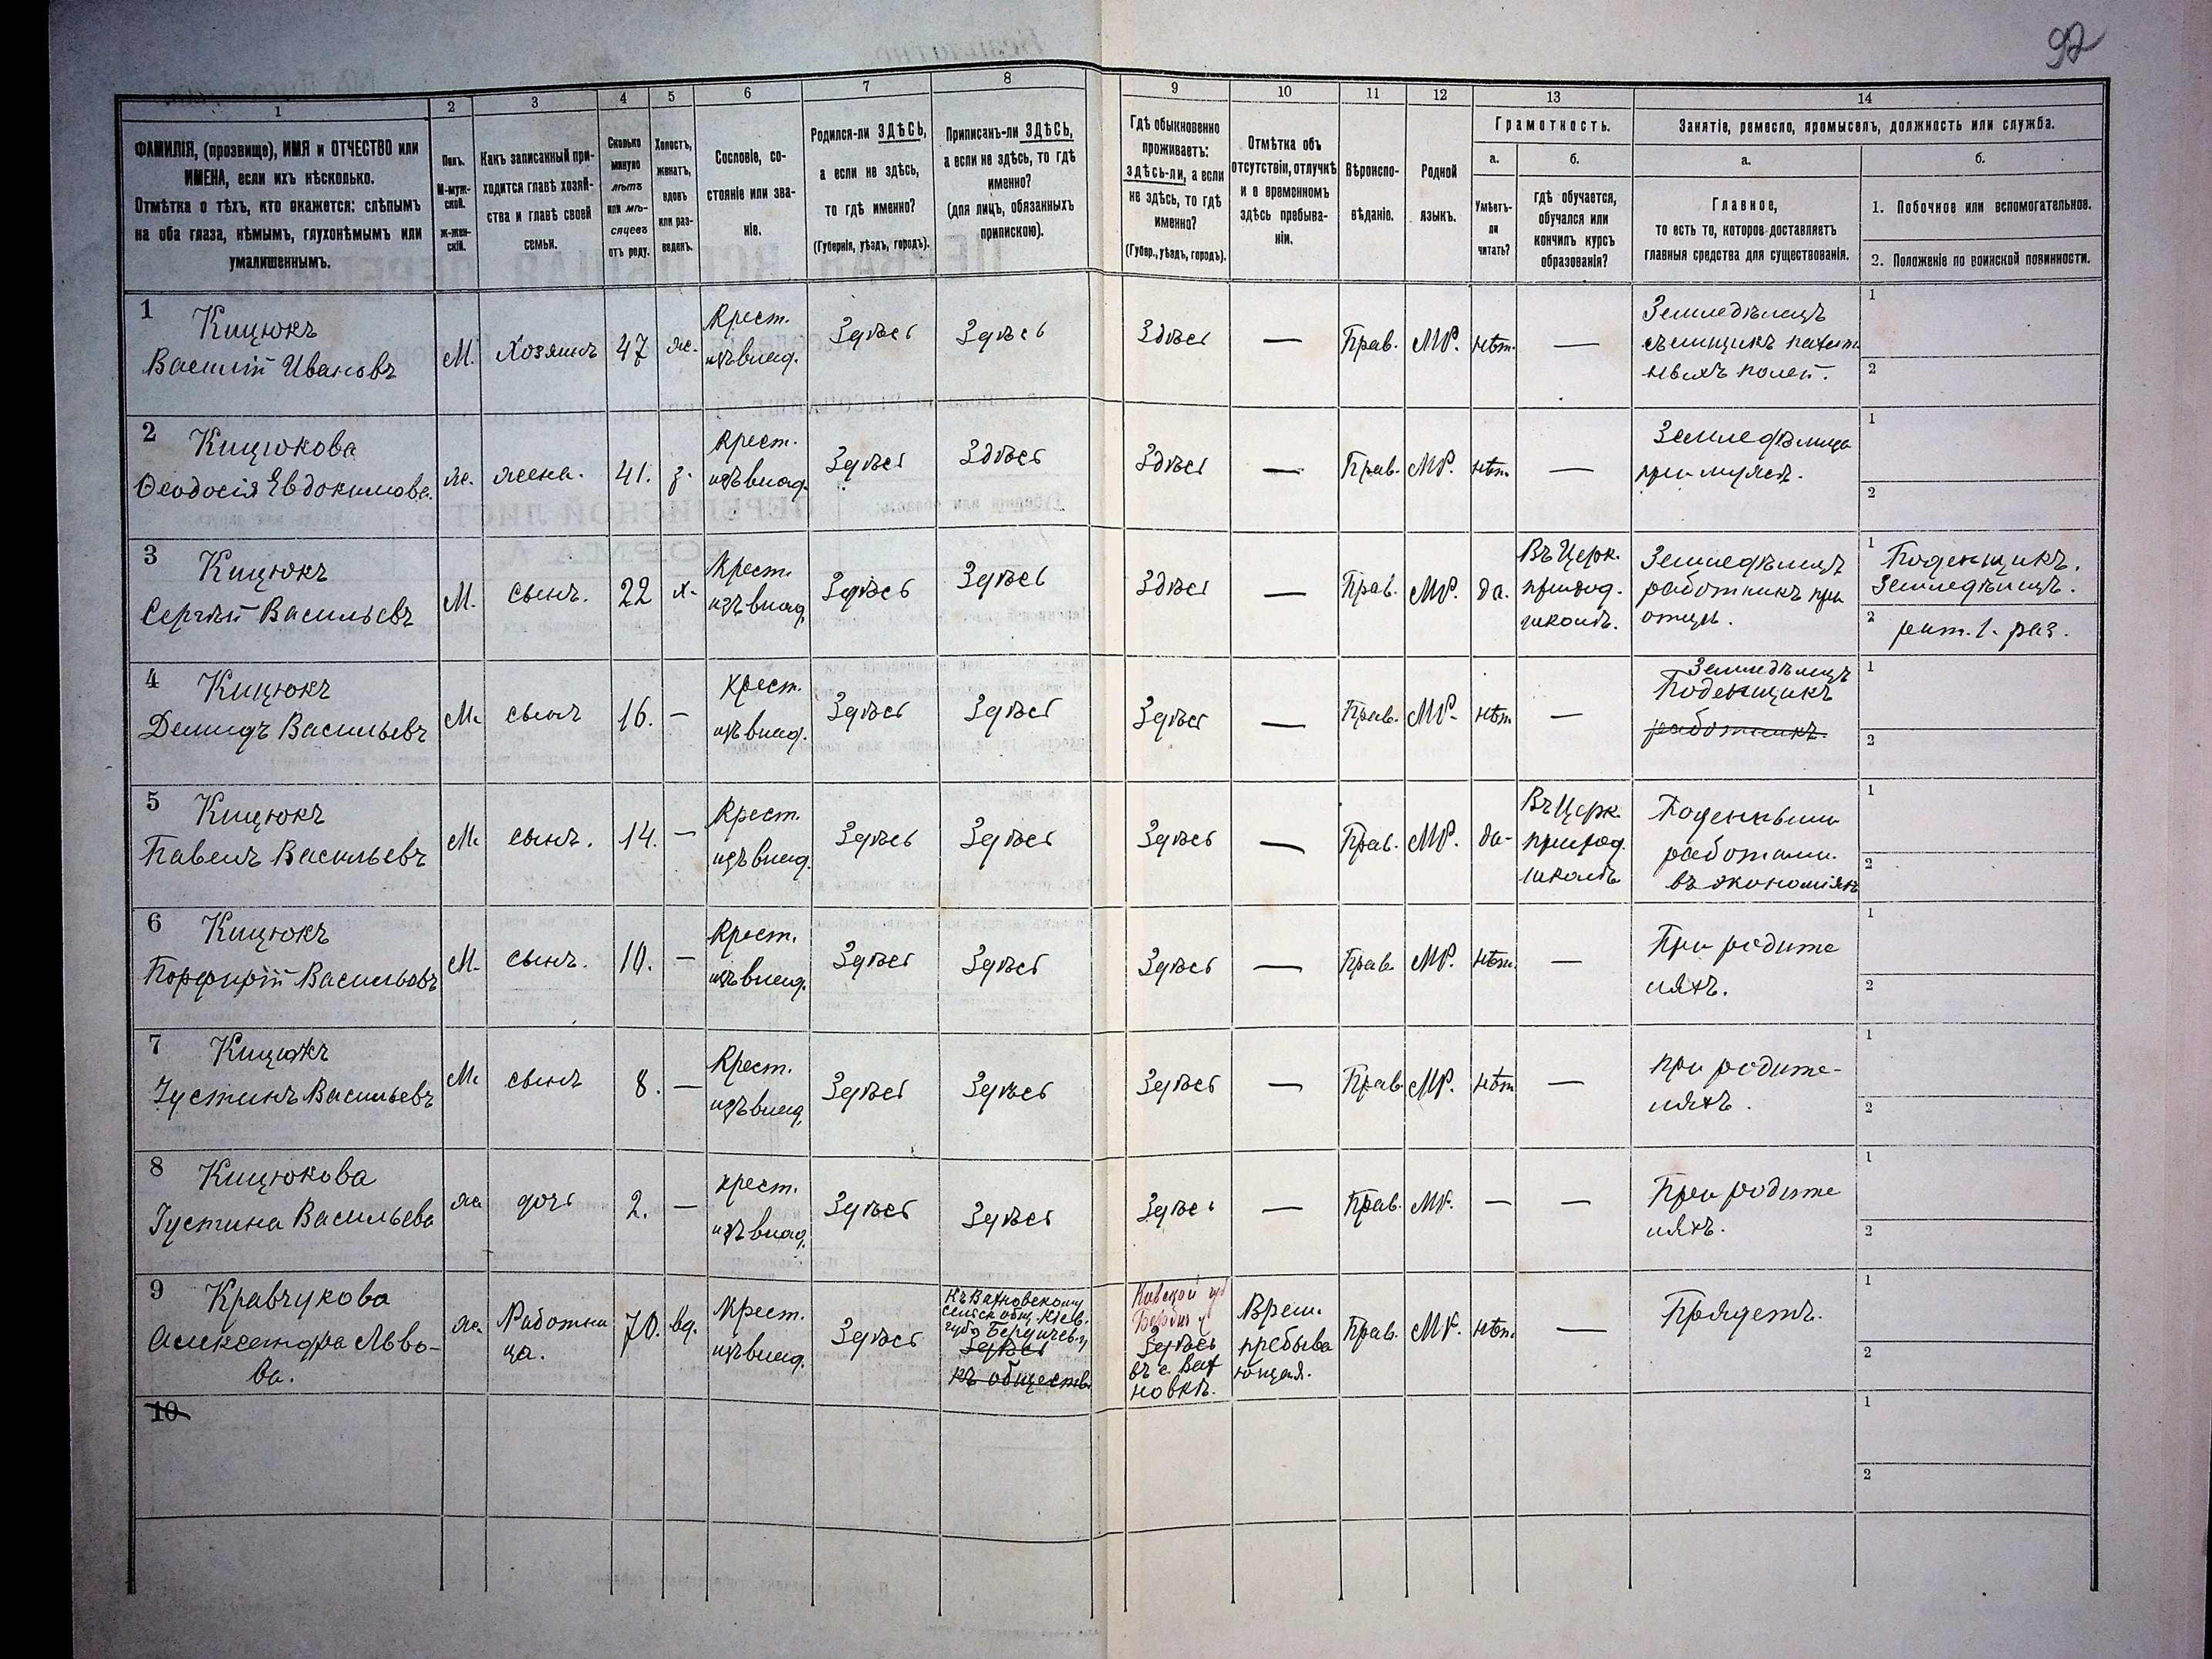 92
1 2 3 4 5 6 7 8 9 10 11 12 13 14
ФАМИЛІЯ, (прозвище), ИМЯ и ОТЧЕСТВО или
ИМЕНА, если ихъ нѣсколько.
Отмѣтка о тѣхъ, кто окажется: слѣпымъ
на оба глаза, нѣмымъ, глухонѣмымъ или
умалишеннымъ.
Полъ.
М-муж-
ской.
Ж-жен-
скій.
Какъ записанный при-
ходится главѣ хозяй-
ства и главѣ своей
семьи.
Сколько
минуло
лѣтъ
или мѣ-
сяцевъ
отъ роду.
Холостъ,
женатъ,
вдовъ
или раз-
веденъ.
Сословіе, со-
стояніе или зва-
ніе.
Родился-ли ЗДѢСЬ,
а если не здѣсь,
то гдѣ именно?
(Губернія, уѣздъ, городъ).
Приписанъ-ли ЗДѢСЬ,
а если не здѣсь, то гдѣ
именно?
(для лицъ, обязанныхъ
припискою).
Гдѣ обыкновенно
проживаетъ:
здѣсь-ли, а если
не здѣсь, то гдѣ
именно?
(Губер., уѣздъ, городъ).
Отмѣтка объ
отсутствіи, отлучкѣ
и о временномъ
здѣсь пребыва-
ніи.
Вѣроиспо-
вѣданіе.
Родной
языкъ.
Грамотность.
а.
Умѣетъ-
ли
читать?
б.
гдѣ обучается,
обучался или
кончилъ курсъ
образованія?
Занятіе, ремесло, промыселъ, должность или служба.
а.
Главное,
то есть то, которое доставляетъ
главныя средства для существованія.
б.
1. Побочное или вспомогательное.
2. Положеніе по воинской повинности.
1
Кицюкъ
Василій Ивановъ
М.
Хозяинъ
47
ж.
Крест.
изъ влад.
Здѣсь
Здѣсь
Здѣсь
—
Прав.
МР.
нѣт.
—
Земледѣлецъ
полей.
1
2
2
Кицюкова
Ѳеодосія Евдокимова.
ж.
жена.
41.
з.
Крест.
изъ влад.
Здѣсь
Здѣсь
Здѣсь
—
Прав.
МР.
нѣт.
—
Земледѣлица
при мужѣ.
1
2
3
Кицюкъ
Сергѣй Васильевъ
М.
сынъ.
22
х.
Крест.
изъ влад.
Здѣсь
Здѣсь
Здѣсь
—
Прав.
МР.
да.
Въ Церк.
приход.
школѣ.
Земледѣлецъ
работникъ при
отцѣ.
1 Поденщикъ.
Земледѣлецъ.
2 рат. 1. раз.
4
Кицюкъ
Демидъ Васильевъ
М.
сынъ
16.
—
Крест.
изъ влад.
Здѣсь
Здѣсь
Здѣсь
—
Прав.
МР.
нѣт
—
Земледѣлецъ
Поденщикъ
работникъ.
1
2
5
Кицюкъ
Павелъ Васильевъ
М.
сынъ.
14.
—
Крест.
изъ влад.
Здѣсь
Здѣсь
Здѣсь
—
Прав.
МР.
да-
Въ Церк.
приход.
школѣ
Поденными
работами.
въ экономіяхъ
1
2
6
Кицюкъ
Порфирій Васильевъ
М.
сынъ.
10.
—
Крест.
изъ влад.
Здѣсь
Здѣсь
Здѣсь
—
Прав.
МР.
нѣт.
—
При родите
ляхъ.
1
2
7
Кицюкъ
Іустинъ Васильевъ
М.
сынъ
8.
—
Крест.
изъ влад.
Здѣсь
Здѣсь
Здѣсь
—
Прав.
МР.
нѣт
—
при родите-
ляхъ.
1
2
8
Кицюкова
Іустина Васильева
ж.
дочь
2.
—
Крест.
изъ влад.
Здѣсь
Здѣсь
Здѣсь
—
Прав.
МР.
—
—
При родите
ляхъ.
1
2
9
Кравчукова
Александра Льво-
ва.
ж.
Работни
ца.
70.
вд.
Крест.
изъ влад.
Здѣсь
Къ Вахновскому
сельск. общ. Кіев.
губ. Бердичев. у
Здѣсь
къ обществ.
Здѣсь
въ с. Вах
новкѣ.
Врем.
пребыва
ющая.
Прав.
МР.
нѣт.
—
Прядетъ.
1
2
10
1
2